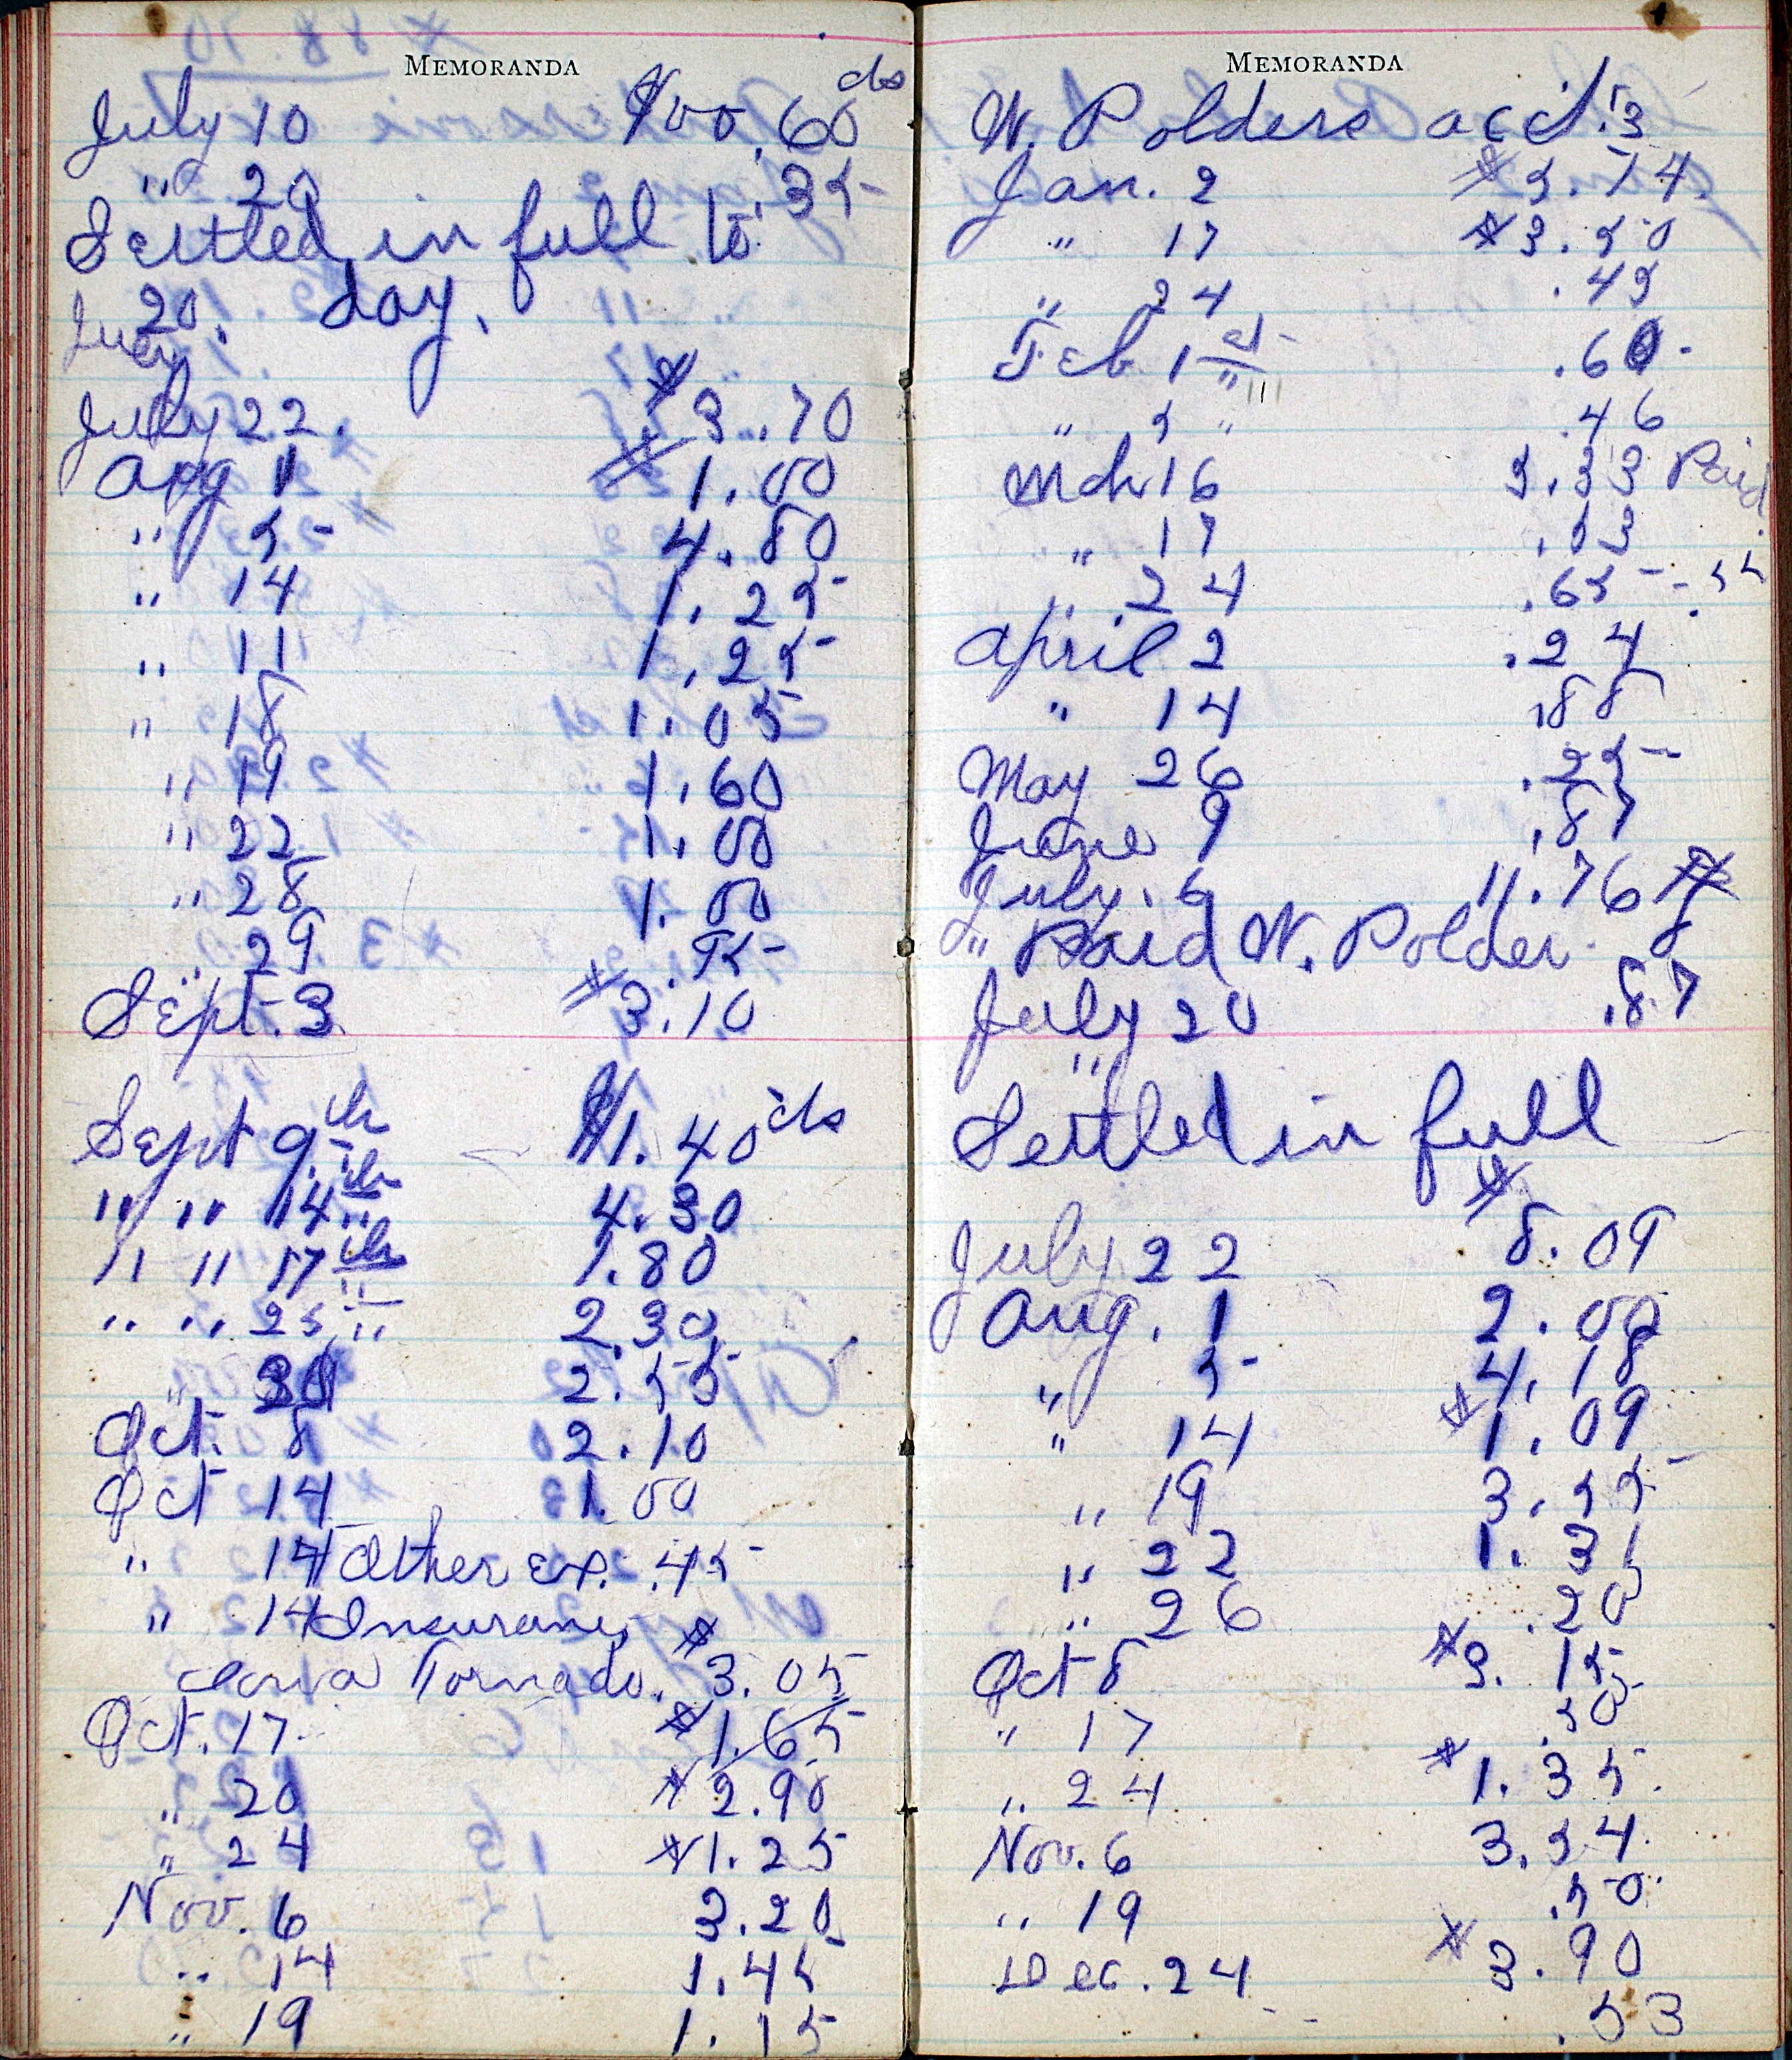 MEMORANDA
July 10 $00.60 cts
" 20 .35
Settled in full to
day.
July 20.
July 22. $3.70
Aug 1 $1.00
" 5 4.80
" 14 1.25
" 11 1.25
" 18 1.05
" 19 1.60
" 22 1.00
" 28 1.00
" 29 .95
Sept. 3 $3.10
Sept 9th $1.40 cts
" " 14th 4.30
" " 17th 1.80
" " 25 " 2.30
" 30 2.55
Oct. 8 2.10
Oct 14 1.00
" 14 Other ex. .45
" 14 Insurance
Iowa Tornado. $3.05
Oct. 17 $1.65
" 20 $2.90
" 24 $1.25
Nov. 6 3.20
" 14 1.45
" 19 1.15
MEMORANDA
W. Polders acct.
Jan. 2 $5.74.
" 17 $3.50
" 24 .45
Feb 1st .60.
" 5 " .46
Mch 16 5.33 Paid.
" 17 .53
" 24 .65
April 2 .24
" 14 .88
May 26 .25
June 9 .87
July. 6 11.76 $
" Paid W. Polder.
July 20 .87
"
Settled in full
July 22 $8.09
Aug. 1 2.00
" 5 4.18
" 14 $1.09
" 19 3.55
" 22 1.31
" 26 .20
Oct 8 $3.15
" 17 .50
" 24 $1.35.
Nov. 6 3.54.
" 19 .50.
Dec. 24 $3.90
.53